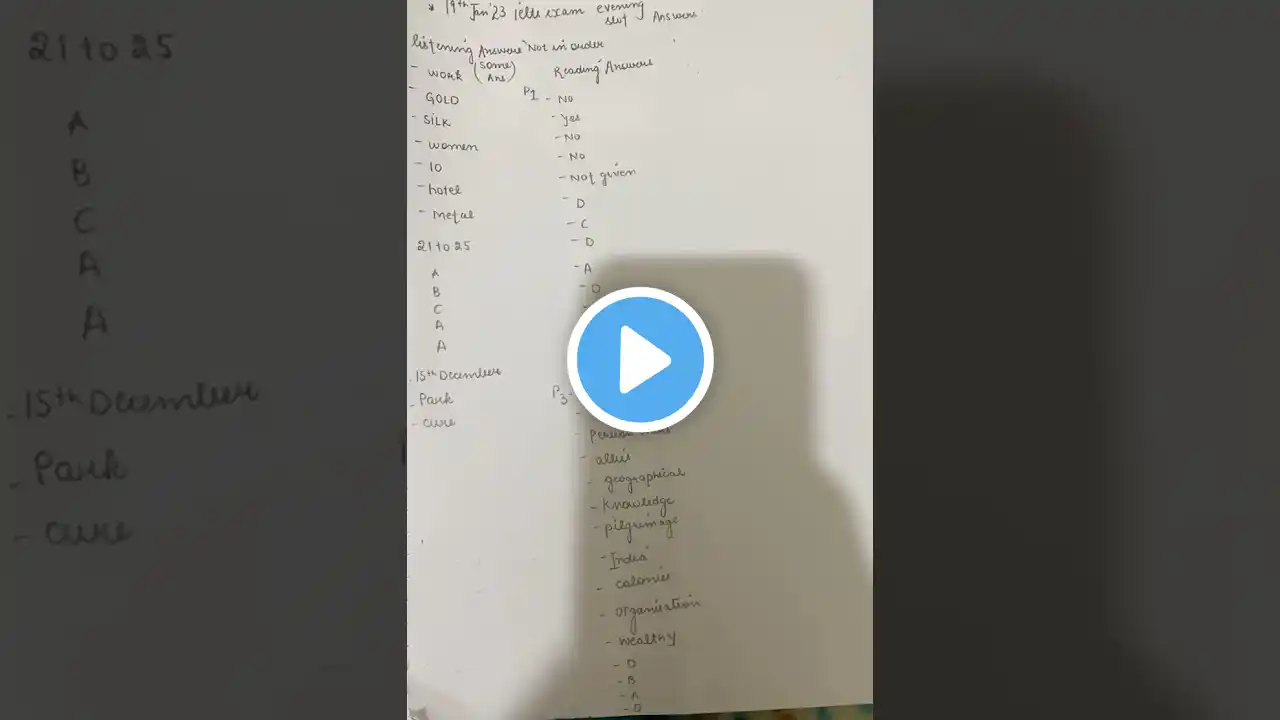 * 19th Jan'23 ielts exam evening slot Answers
listening Answers Not in order
- work (some Ans)
- GOLD
- SILK
- women
- 10
- hotel
- Metal
21 to 25
A
B
C
A
A
- 15th December
- Park
- cure
Reading Answers
P1 - No
- Yes
- No
- No
- Not given
- D
- C
- D
- A
- D
P3 -
- allies
- geographical
- knowledge
- pilgrimage
- India
- colonies
- organisation
- wealthy
- D
- B
- A
- D
21 to 25
A
B
C
A
A
- 15th December
- Park
- cure